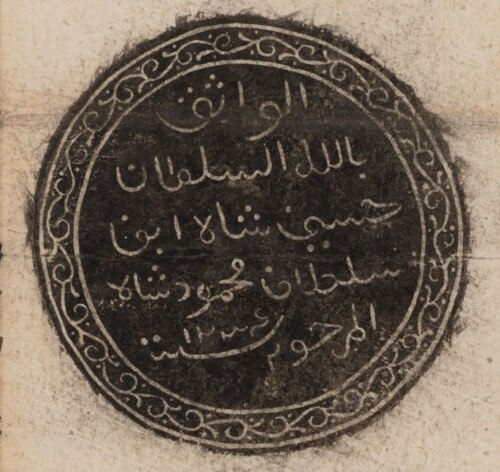 الواثق
بالله السلطان
حسين شاه ابن
سلطان محمود شاه
المرحوم سنة ١٢٣٤